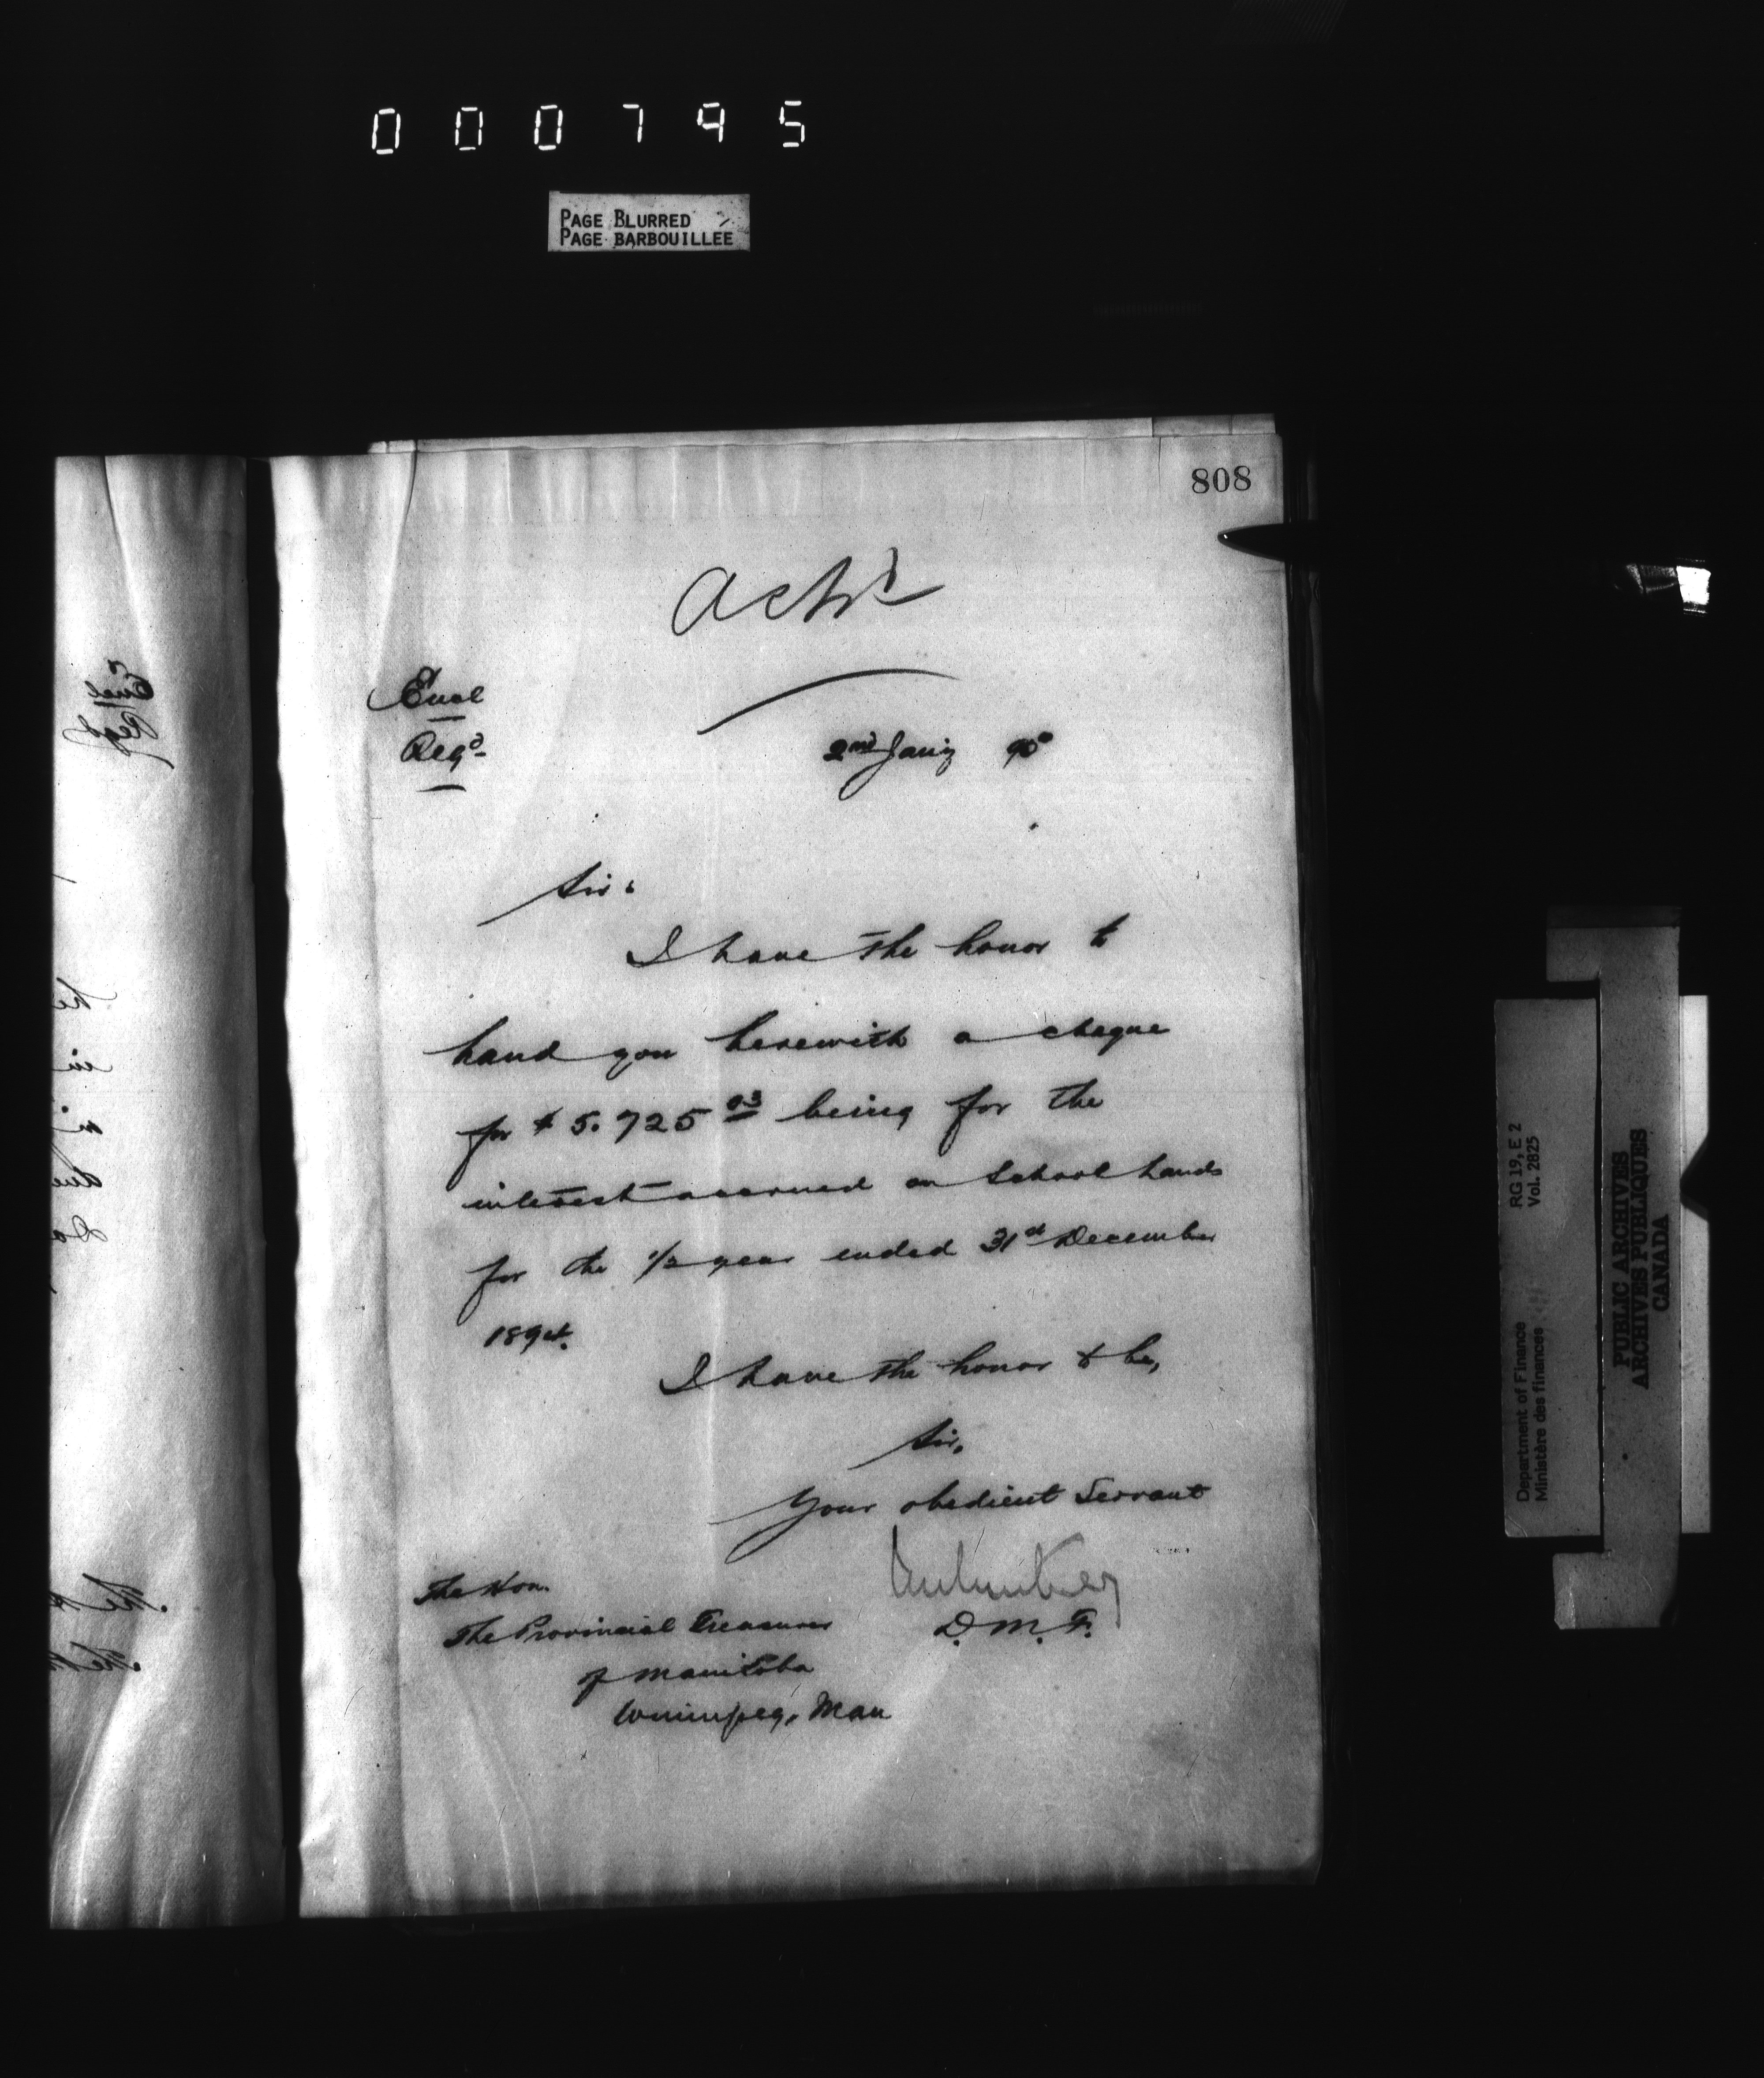 000795
PAGE BLURRED
PAGE BARBOUILLÉE
808
Encl
Regd
2nd Jany
Sir:
I have the honor to
hand you herewith a cheque
for $5.725 03 being for the
interest accrued on School Lands
for the 1/2 year ended 31st December
1894.
I have the honor to be,
Sir,
Your obedient Servant
D. M. F.
The Hon.
The Provincial Treasurer
of Manitoba
Winnipeg, Man
RG 19, E 2
Vol. 2825
Department of Finance
Ministère des finances
PUBLIC ARCHIVES
ARCHIVES PUBLIQUES
CANADA